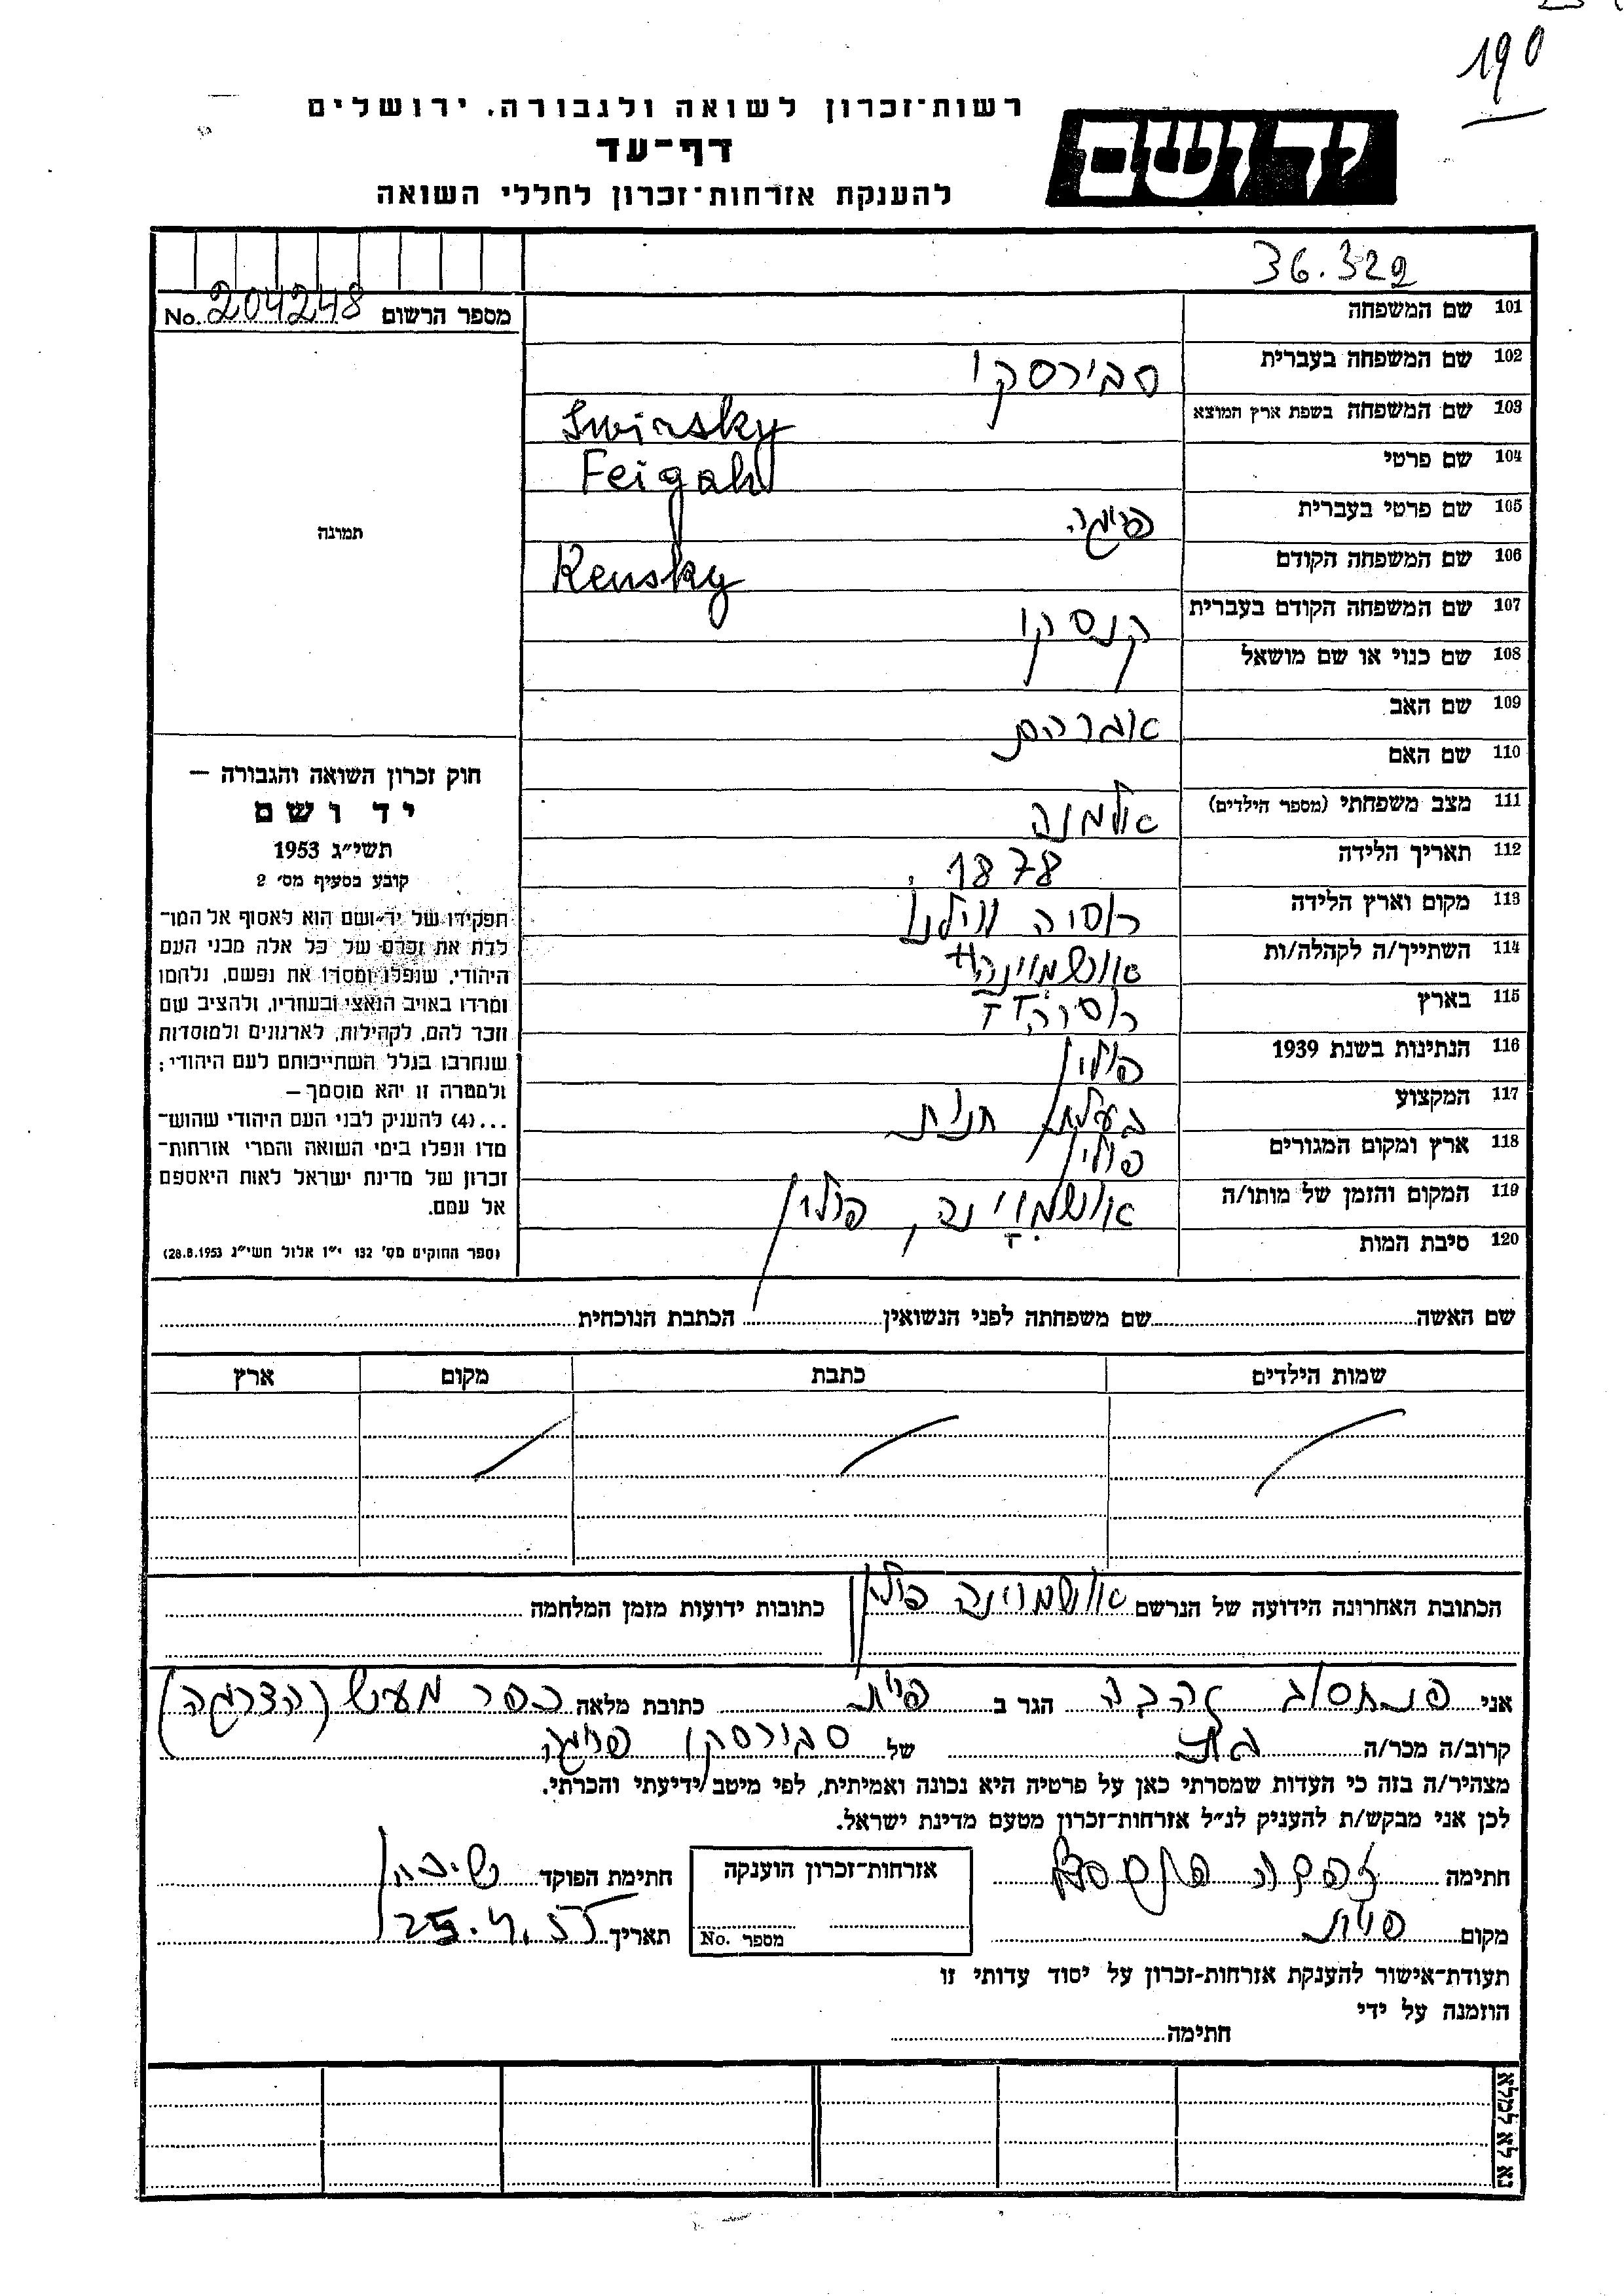 190
רשות־זכרון לשואה ולגבורה. ירושלים
יד ושם
דף־עד
להענקת אזרחות־זכרון לחללי השואה
36.322
מספר הרשום No. 204248
תמונה
101 שם המשפחה
102 שם המשפחה בעברית סבירסקי
103 שם המשפחה בשפת ארץ המוצא Swirsky
104 שם פרטי Feigah
105 שם פרטי בעברית פייגה
106 שם המשפחה הקודם Kensky
107 שם המשפחה הקודם בעברית קנסקי
108 שם כנוי או שם מושאל
109 שם האב אברהם
110 שם האם
111 מצב משפחתי (מספר הילדים) אלמנה
112 תאריך הלידה 1878
113 מקום וארץ הלידה רוסיה ווילנו
114 השתייך/ה לקהלה/ות אושמיינה
115 בארץ רוסיה
116 הנתינות בשנת 1939 פולין
117 המקצוע בעלת חנות
118 ארץ ומקום המגורים פולין
119 המקום והזמן של מותו/ה אושמיינה, פולין
120 סיבת המות
חוק זכרון השואה והגבורה —
יד ושם
תשי״ג 1953
קובע בסעיף מס׳ 2
תפקידו של יד־ושם הוא לאסוף אל המו־
לדת את זכרם של כל אלה מבני העם
היהודי, שנפלו ומסרו את נפשם, נלחמו
ומרדו באויב הנאצי ובעוזריו, ולהציב שם
וזכר להם, לקהילות, לארגונים ולמוסדות
שנחרבו בגלל השתייכותם לעם היהודי;
ולמטרה זו יהא מוסמך —
...(4) להעניק לבני העם היהודי שהוש־
מדו ונפלו בימי השואה והמרי אזרחות־
זכרון של מדינת ישראל לאות היאספם
אל עמם.
(ספר החוקים מס׳ 132 י״ז אלול תשי״ג 28.8.1953)
שם האשה שם משפחתה לפני הנשואין הכתבת הנוכחית
שמות הילדים כתבת מקום ארץ
הכתובת האחרונה הידועה של הנרשם אושמיינה פולין כתובות ידועות מזמן המלחמה
אני הגר ב כתובת מלאה כפר מעש
קרוב/ה מכר/ה בת של סבירסקי פייגה
מצהיר/ה בזה כי העדות שמסרתי כאן על פרטיה היא נכונה ואמיתית, לפי מיטב ידיעתי והכרתי.
לכן אני מבקש/ת להעניק לנ״ל אזרחות־זכרון מטעם מדינת ישראל.
חתימה אזרחות־זכרון הוענקה חתימת הפוקד
מקום מספר No. תאריך 25.4.55
תעודת־אישור להענקת אזרחות־זכרון על יסוד עדותי זו
הוזמנה על ידי
חתימה
נא לא למלא